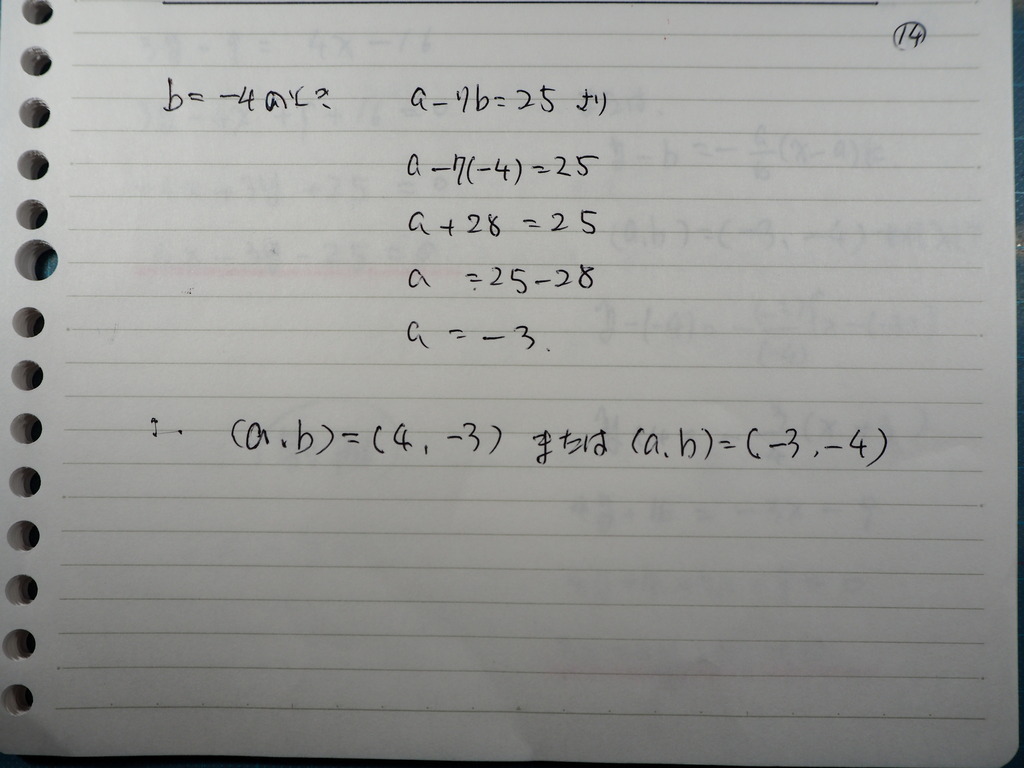 ⑭
b = -4 のとき a - 7b = 25 より
a - 7(-4) = 25
a + 28 = 25
a = 25 - 28
a = -3.
∴ (a, b) = (4, -3) または (a, b) = (-3, -4)